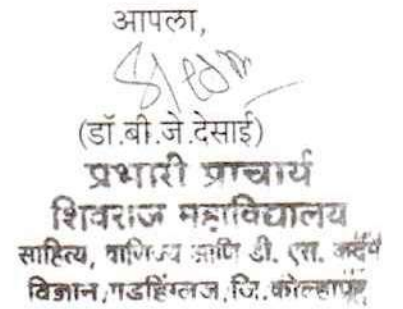 आपला,
(डॉ.बी.जे.देसाई)
प्रभारी प्राचार्य
शिवराज महाविद्यालय
साहित्य, वाणिज्य आणि डी. एस. कदम
विज्ञान, गडहिंग्लज, जि. कोल्हापूर